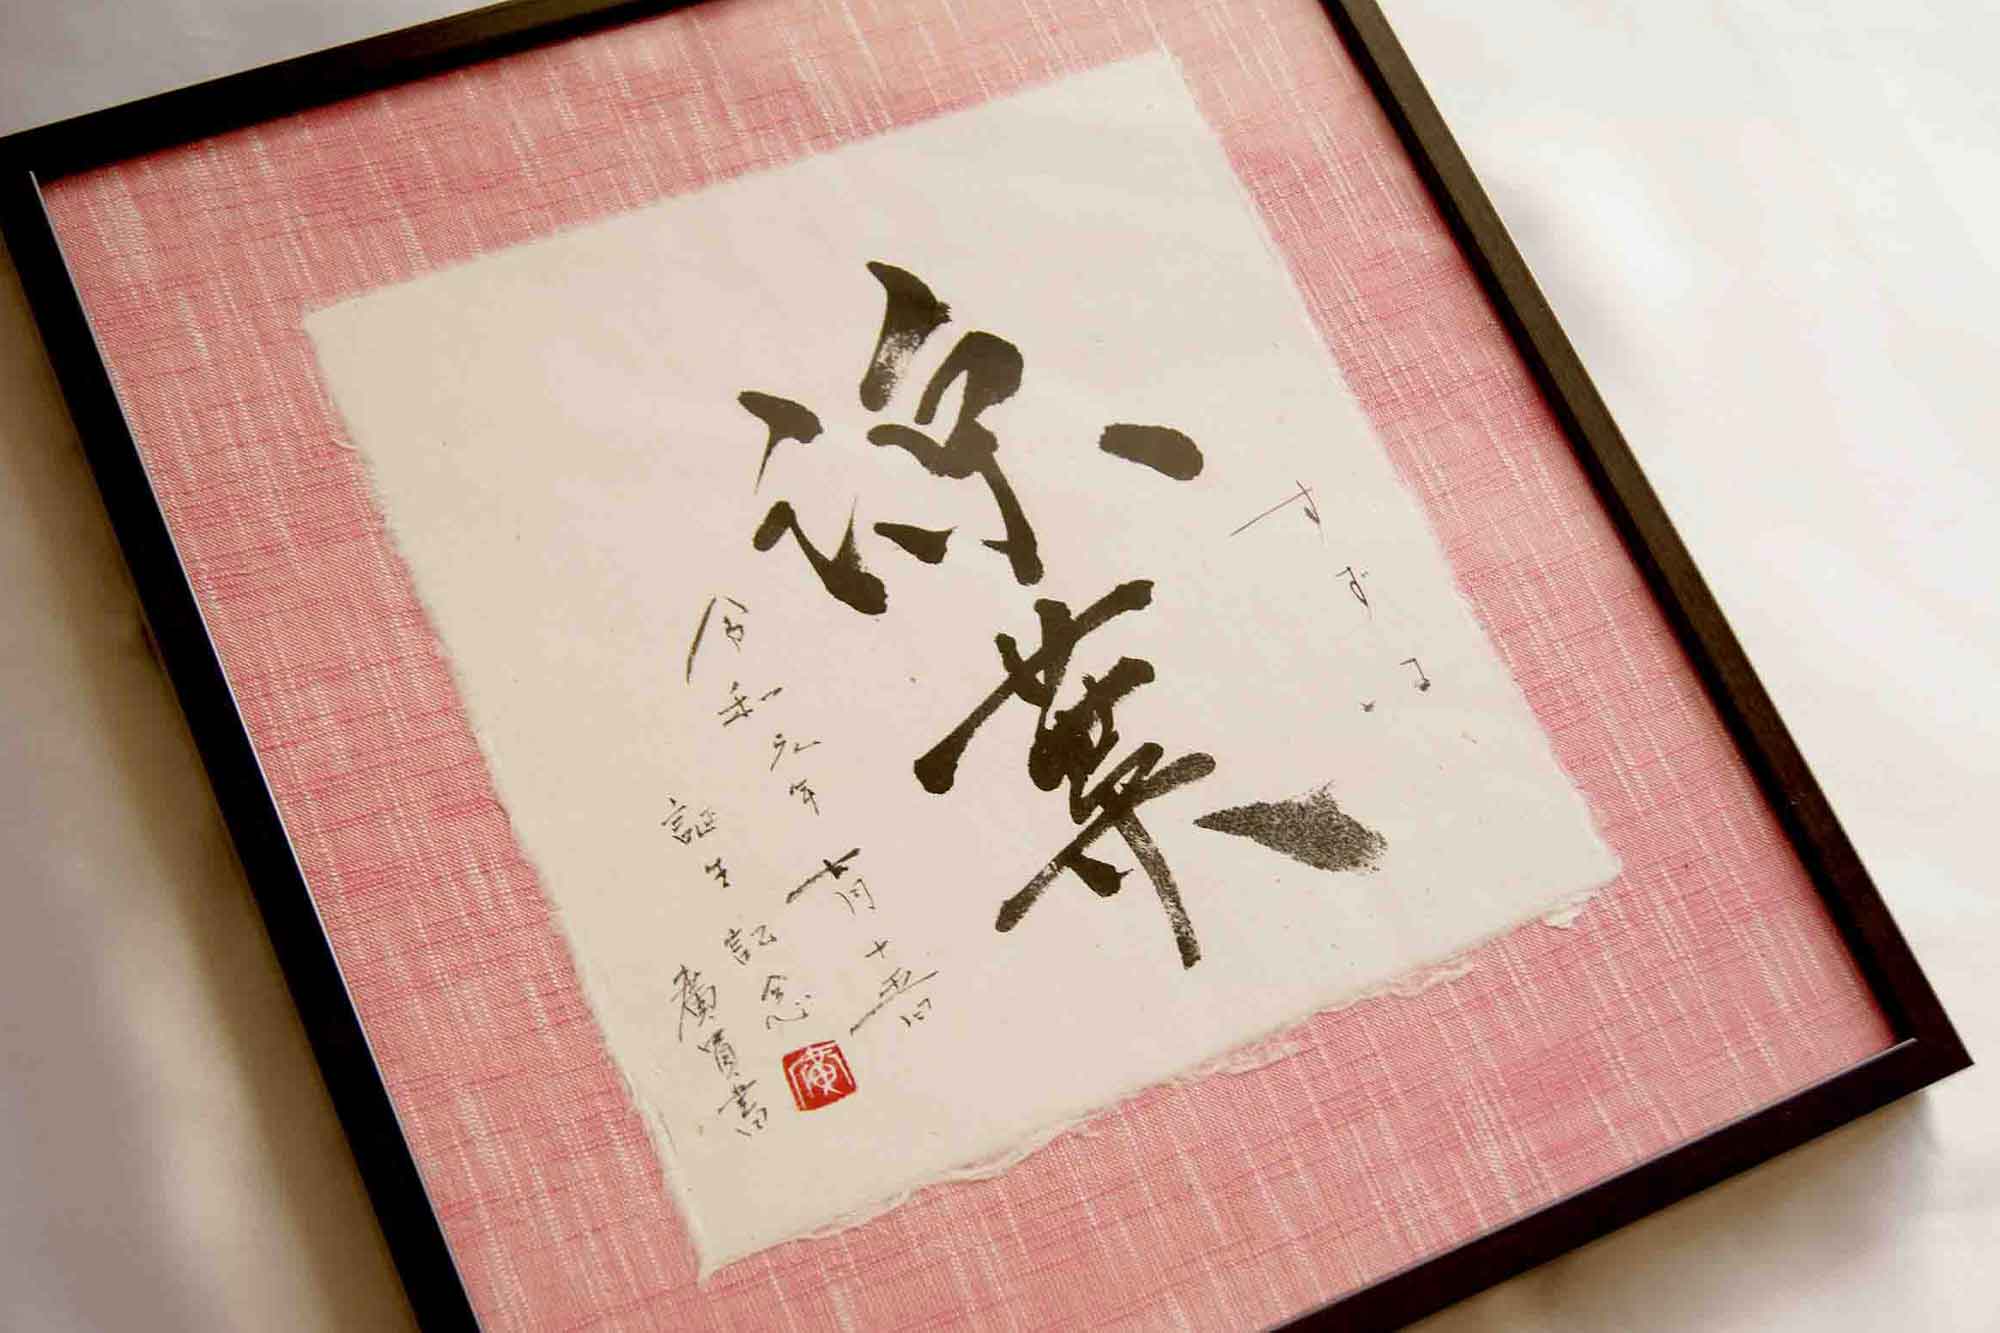 涼葉
すずは
令和元年十月十五日
誕生記念
廣 書